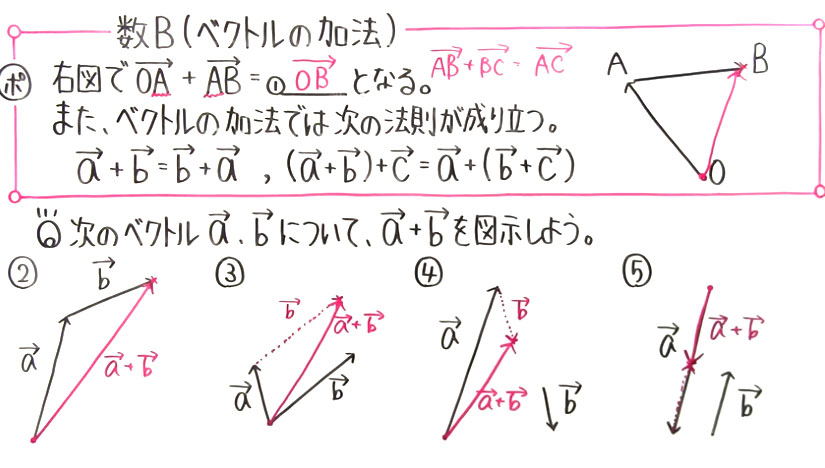 数B(ベクトルの加法)
ポ 右図で OA→ + AB→ = ① OB→ となる。 AB→ + BC→ = AC→
また、ベクトルの加法では次の法則が成り立つ。
a→ + b→ = b→ + a→ , (a→ + b→) + c→ = a→ + (b→ + c→)
A B
O
次のベクトル a→、b→ について、a→ + b→ を図示しよう。
② a→ b→ a→ + b→
③ a→ b→ b→ a→ + b→
④ a→ b→ a→ + b→ b→
⑤ a→ a→ + b→ b→